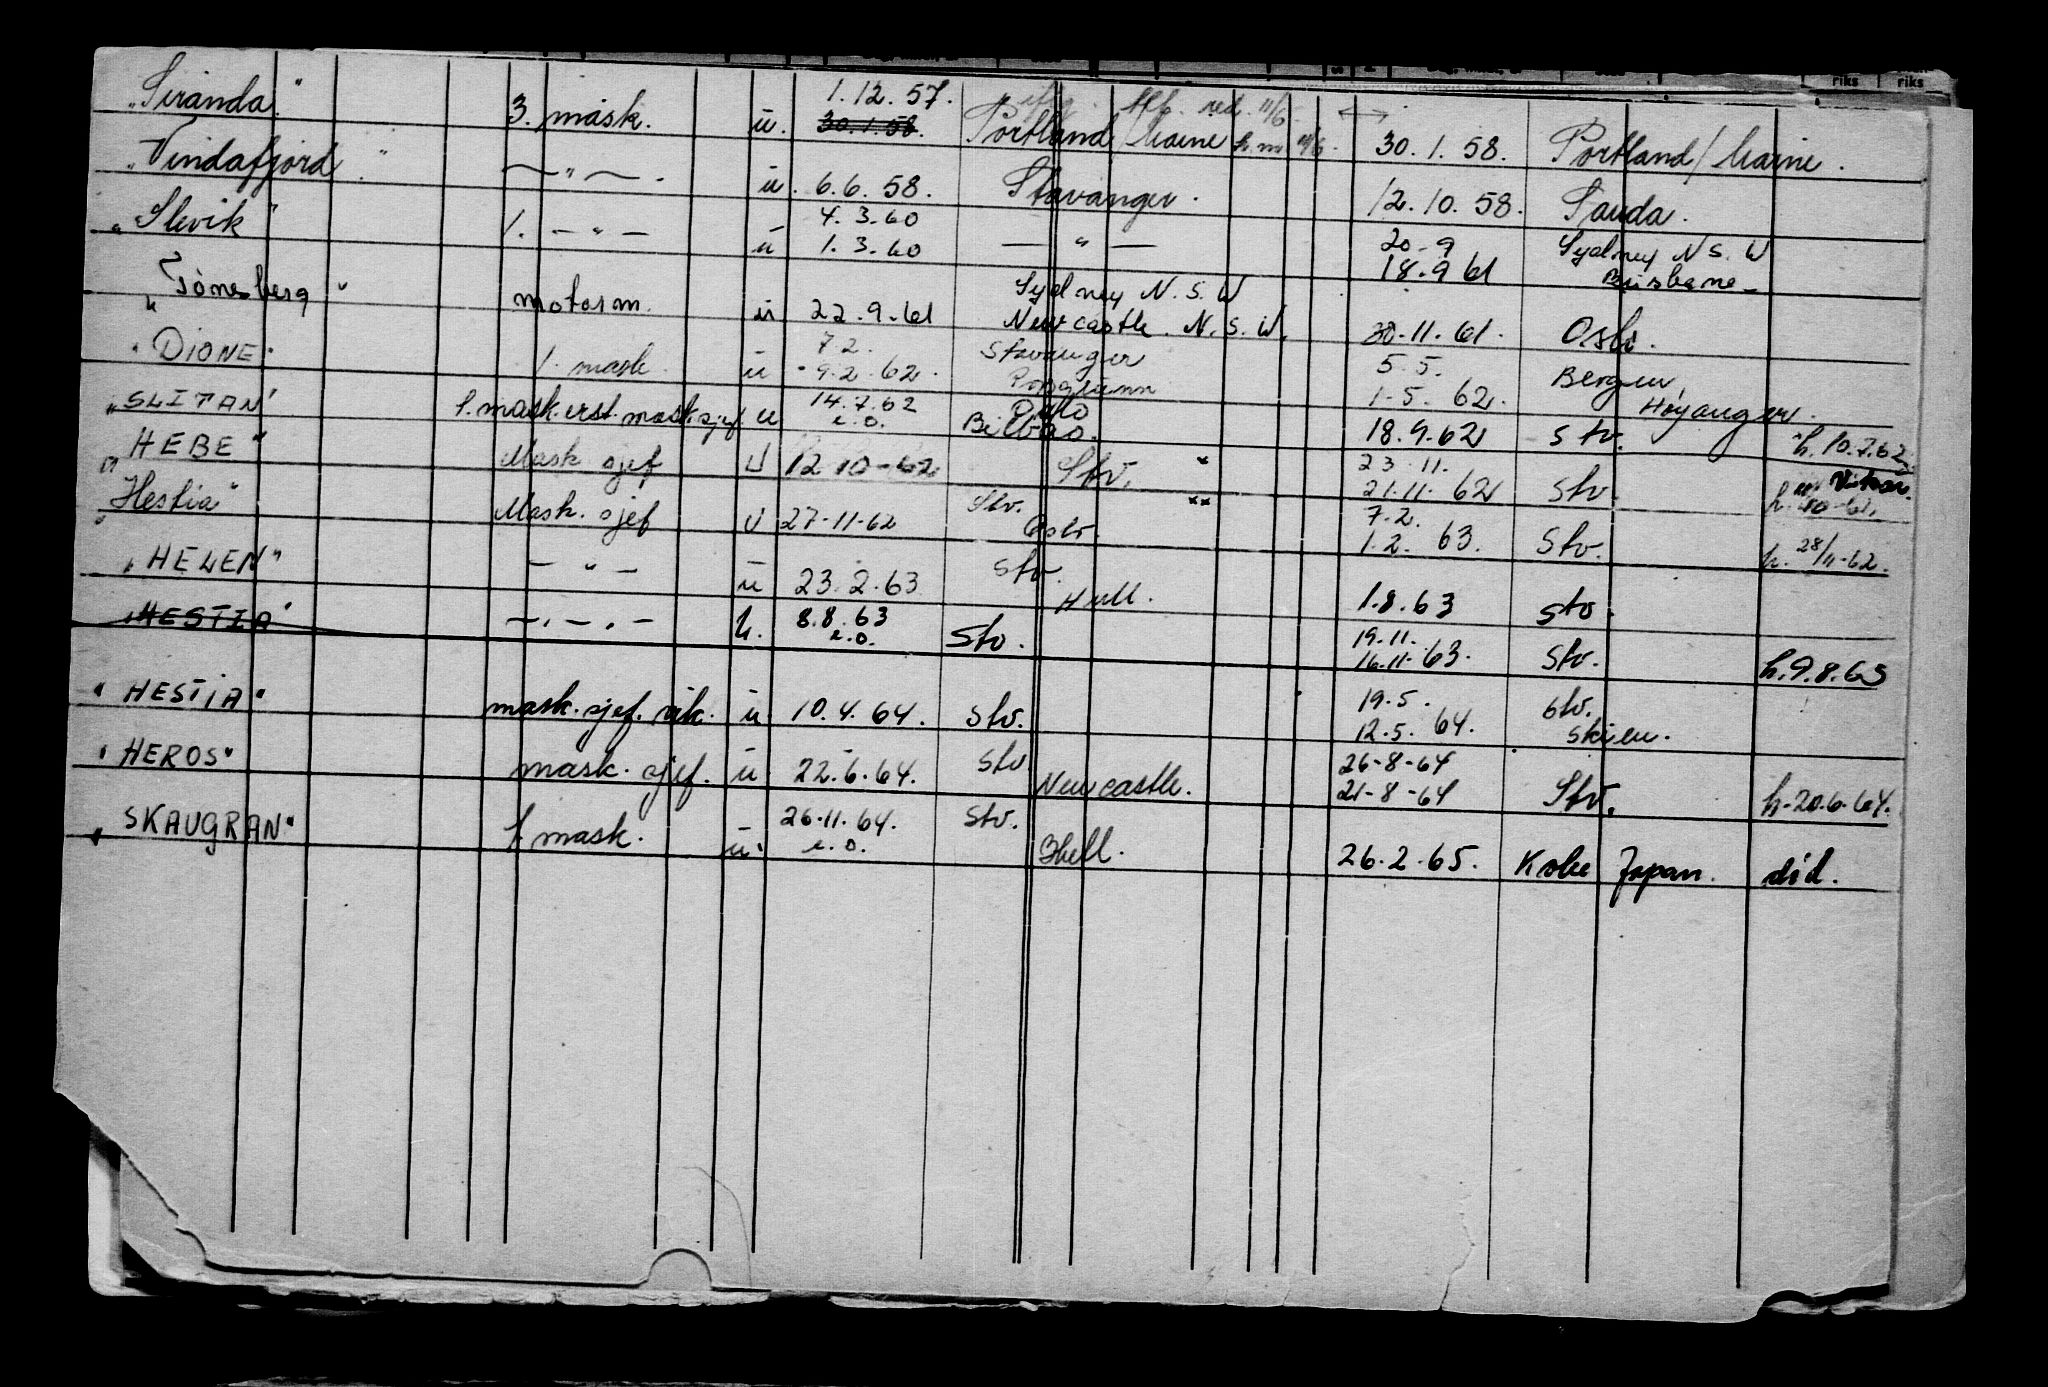 riks riks
„Siranda" 3. mask. u. 1.12.57. 30.1.58. Portland/Maine 30.1.58. Portland/Maine.
„Vindafjord" — " — . u. 6.6.58. Stavanger. 12.10.58. Sauda.
„Slevik" 1. — " — u 4.3.60 1.3.60 — " — 20-9 18.9 61 Sydney N S. W Brisbane -
„Tönesberg" motorm. u 22.9.61 Sydney N.S.W Newcastle. N.S.W. 30.11.61. Oslo.
"DIONE" 1. mask. u 7 2. 9.2.62. Stavanger Porsgrunn 5.5. 1.5.62. Bergen Høyanger.
„SLITAN" 1. mask. erst. mask. sjef u 14.7.62 i.o. Oslo Bilbao. 18.9.62 Stv. h. 10.7.62
„HEBE" Mask. sjef U 12.10-62 Stv. * 23.11. 21.11.62 Stv.
„Hestia" Mask. sjef U 27-11-62 Stv. Oslo. ** 7.2. 1.2.63. Stv. h. 28/11-62.
„HELEN" — " — u 23.2.63 Stv. Hull. 1.8.63 Stv.
„HESTIA" — . — . — h. 8.8.63 i.o. Stv. 19.11. 16.11.63. Stv. h. 9.8.63
"HESTIA" mask. sjef. vik. u 10.4.64. Stv. 19.5. 12.5.64. Stv. Skien.
"HEROS" mask. sjef. u 22.6.64. Stv Newcastle. 26-8-64 21-8-64 Stv. h. 20.6.64.
„SKAUGRAN" 1 mask. u. 26.11.64. i.o. Stv. 26.2.65. Kobe Japan. did.